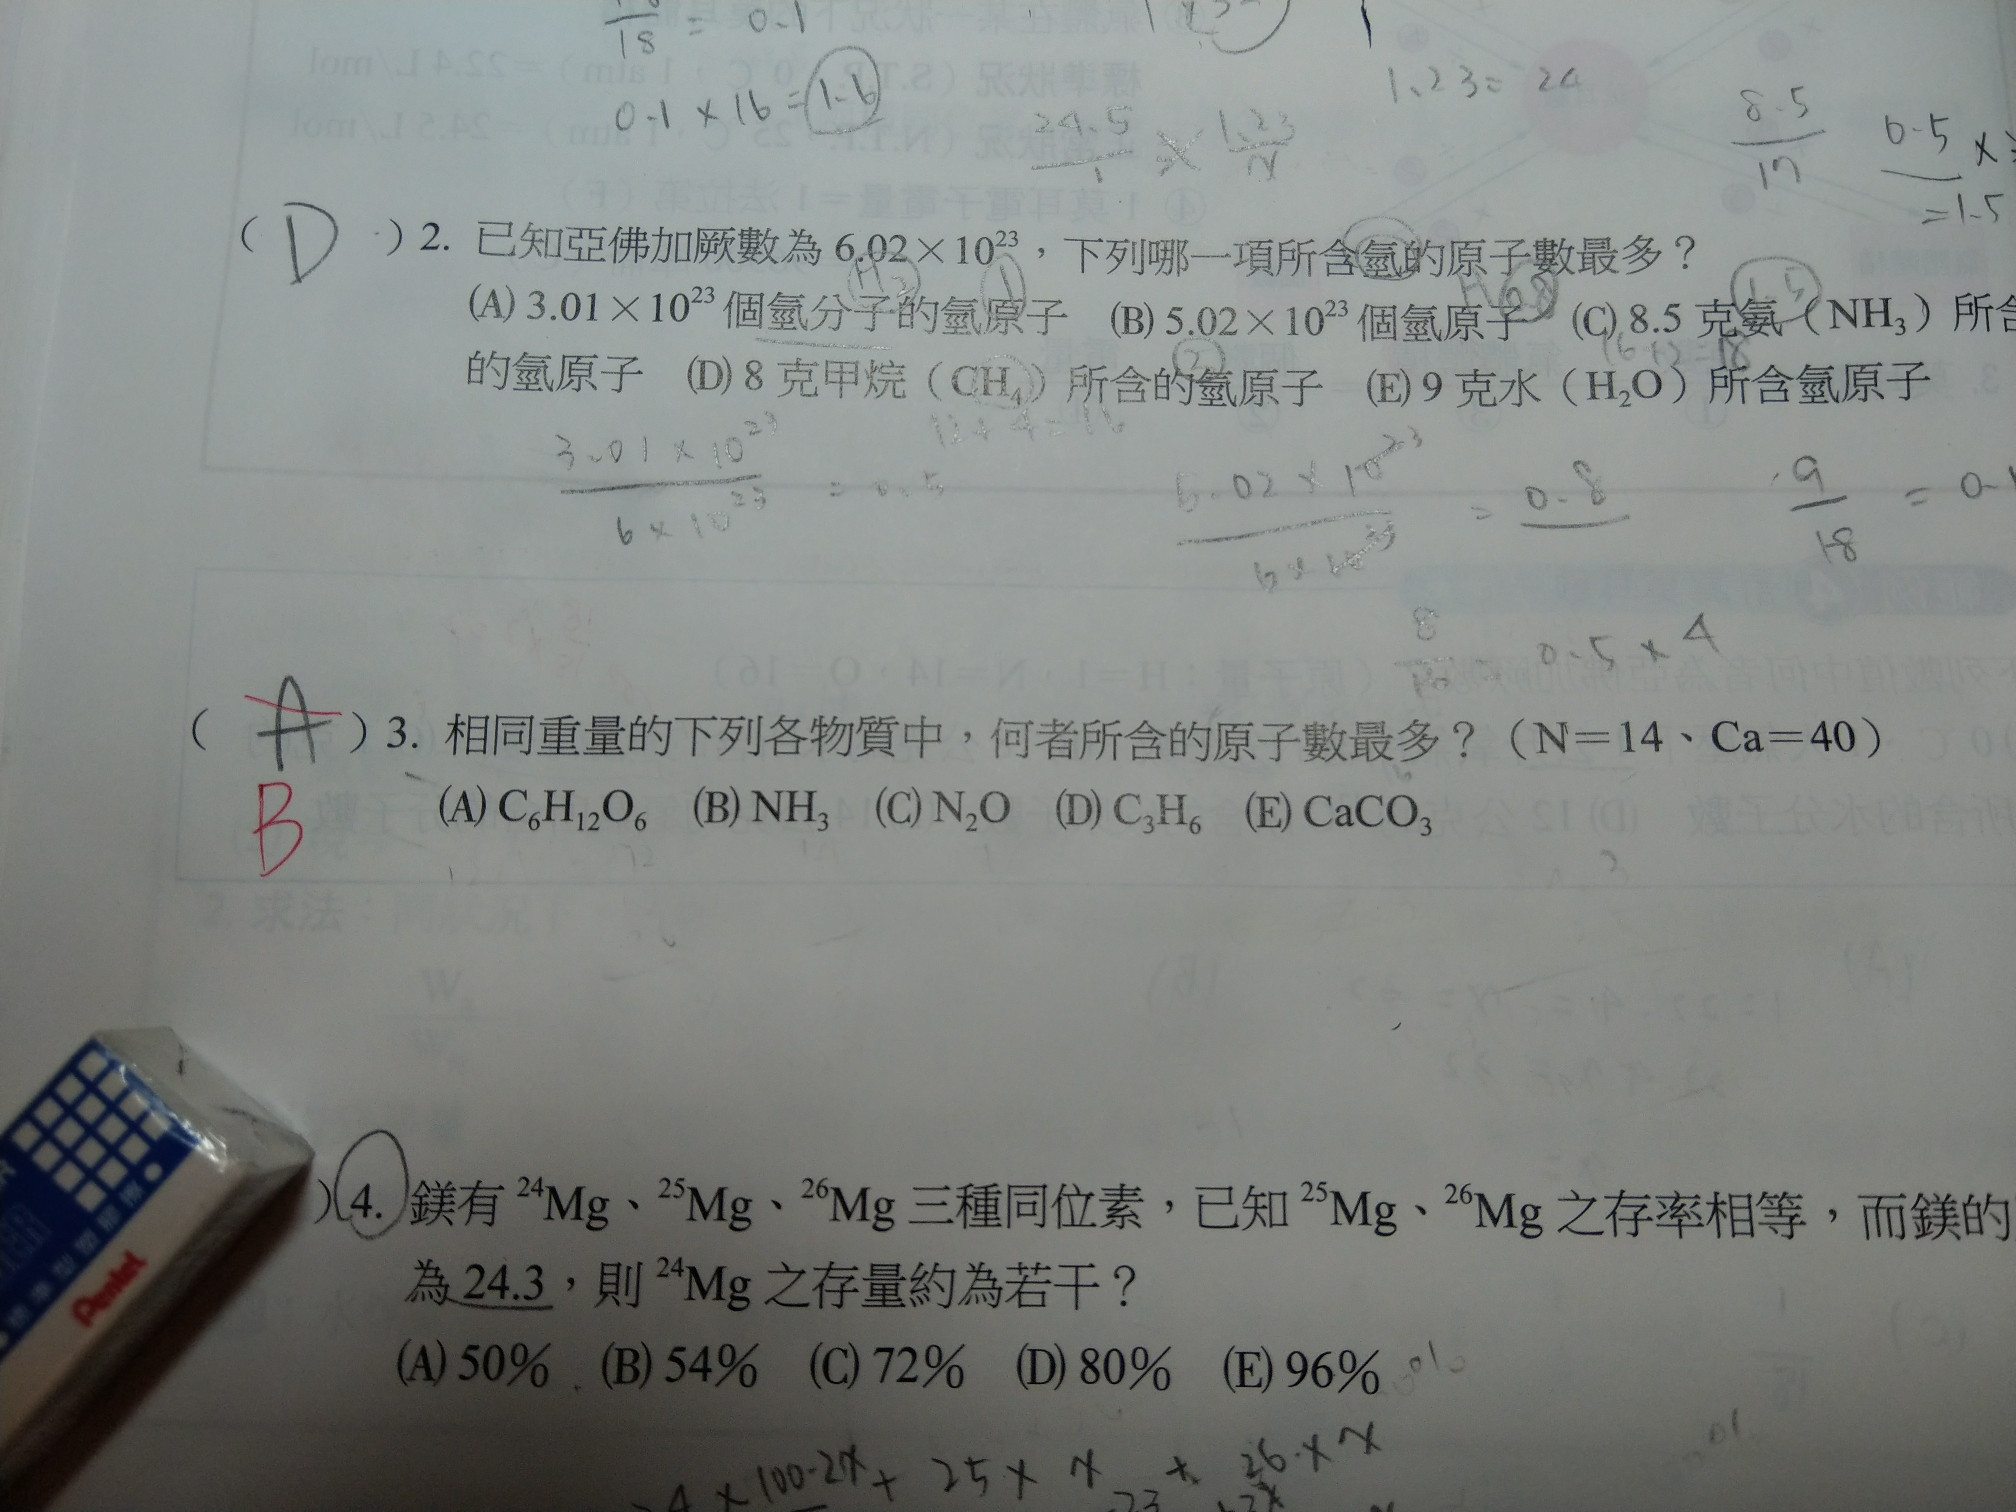 18 = 0.1
0.1 × 16 = 1.6
24.5 × 1.23
1
1.23 = 24
8.5
17
6.5 ×
= 1.5
( D ) 2. 已知亞佛加厥數為 6.02×10²³，下列哪一項所含氫的原子數最多？
(A) 3.01×10²³ 個氫分子的氫原子 (B) 5.02×10²³ 個氫原子 (C) 8.5 克氨（NH₃）所含
的氫原子 (D) 8 克甲烷（CH₄）所含的氫原子 (E) 9 克水（H₂O）所含氫原子
12+4=16
3.01 × 10²³
6 × 10²³
= 0.5
5.02 × 10²³
6 × 10²³
= 0.8
9
18
= 0.
8
16
0.5 × 4
( A ) 3. 相同重量的下列各物質中，何者所含的原子數最多？（N＝14、Ca＝40）
B (A) C₆H₁₂O₆ (B) NH₃ (C) N₂O (D) C₃H₆ (E) CaCO₃
) 4. 鎂有 ²⁴Mg、²⁵Mg、²⁶Mg 三種同位素，已知 ²⁵Mg、²⁶Mg 之存率相等，而鎂的
為 24.3，則 ²⁴Mg 之存量約為若干？
(A) 50% (B) 54% (C) 72% (D) 80% (E) 96%
4 × 100-2x + 25 × x + 26 × x
Pentel